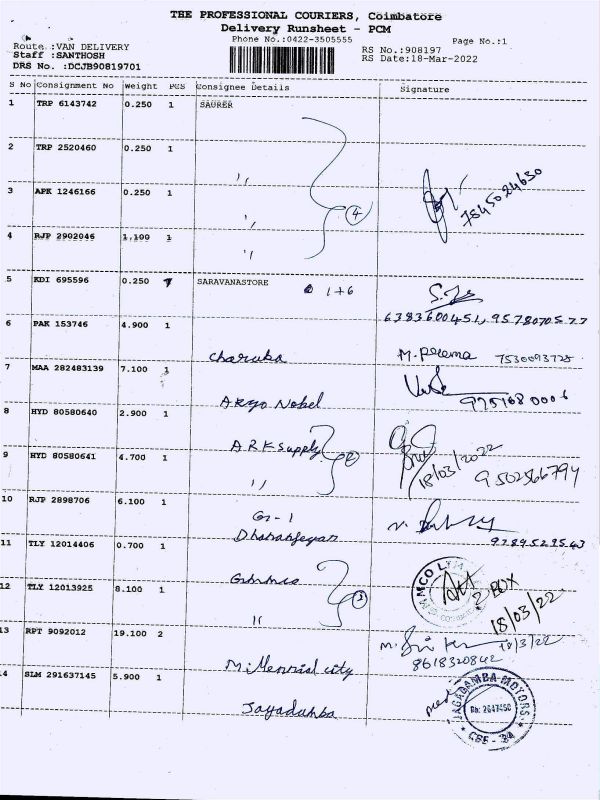 THE PROFESSIONAL COURIERS, Coimbatore
Delivery Runsheet - PCM
Phone No.:0422-3505555
Page No.:1
Route :VAN DELIVERY
Staff :SANTHOSH
DRS No. :DCJB90819701
RS No.:908197
RS Date:18-Mar-2022
S No Consignment No Weight PCS Consignee Details Signature
1 TRP 6143742 0.250 1 SAURER
2 TRP 2520460 0.250 1 ,,
3 APK 1246166 0.250 1 ,,
4 7845024630
4 RJP 2902046 1.100 1 ,,
5 KDI 695596 0.250 SARAVANASTORE 1+6
6383600451, 9578070577
6 PAK 153746 4.900 1 Charuka M. Prema
7 MAA 282483139 7.100 1 Argo Nobel
8 HYD 80580640 2.900 1 ARK Supply 18/03/2022
9 HYD 80580641 4.700 1 ,, 9502566794
10 RJP 2898706 6.100 1 G-1
11 TLY 12014406 0.700 1
2 BOX
12 TLY 12013925 8.100 1 ,, 18/03/22
13 RPT 9092012 19.100 2 Millennial city 18/3/22
8618320842
14 SLM 291637145 5.900 1 Jagadamba
JAGADAMBA MOTORS
Ph: 2647450
CBE - 24